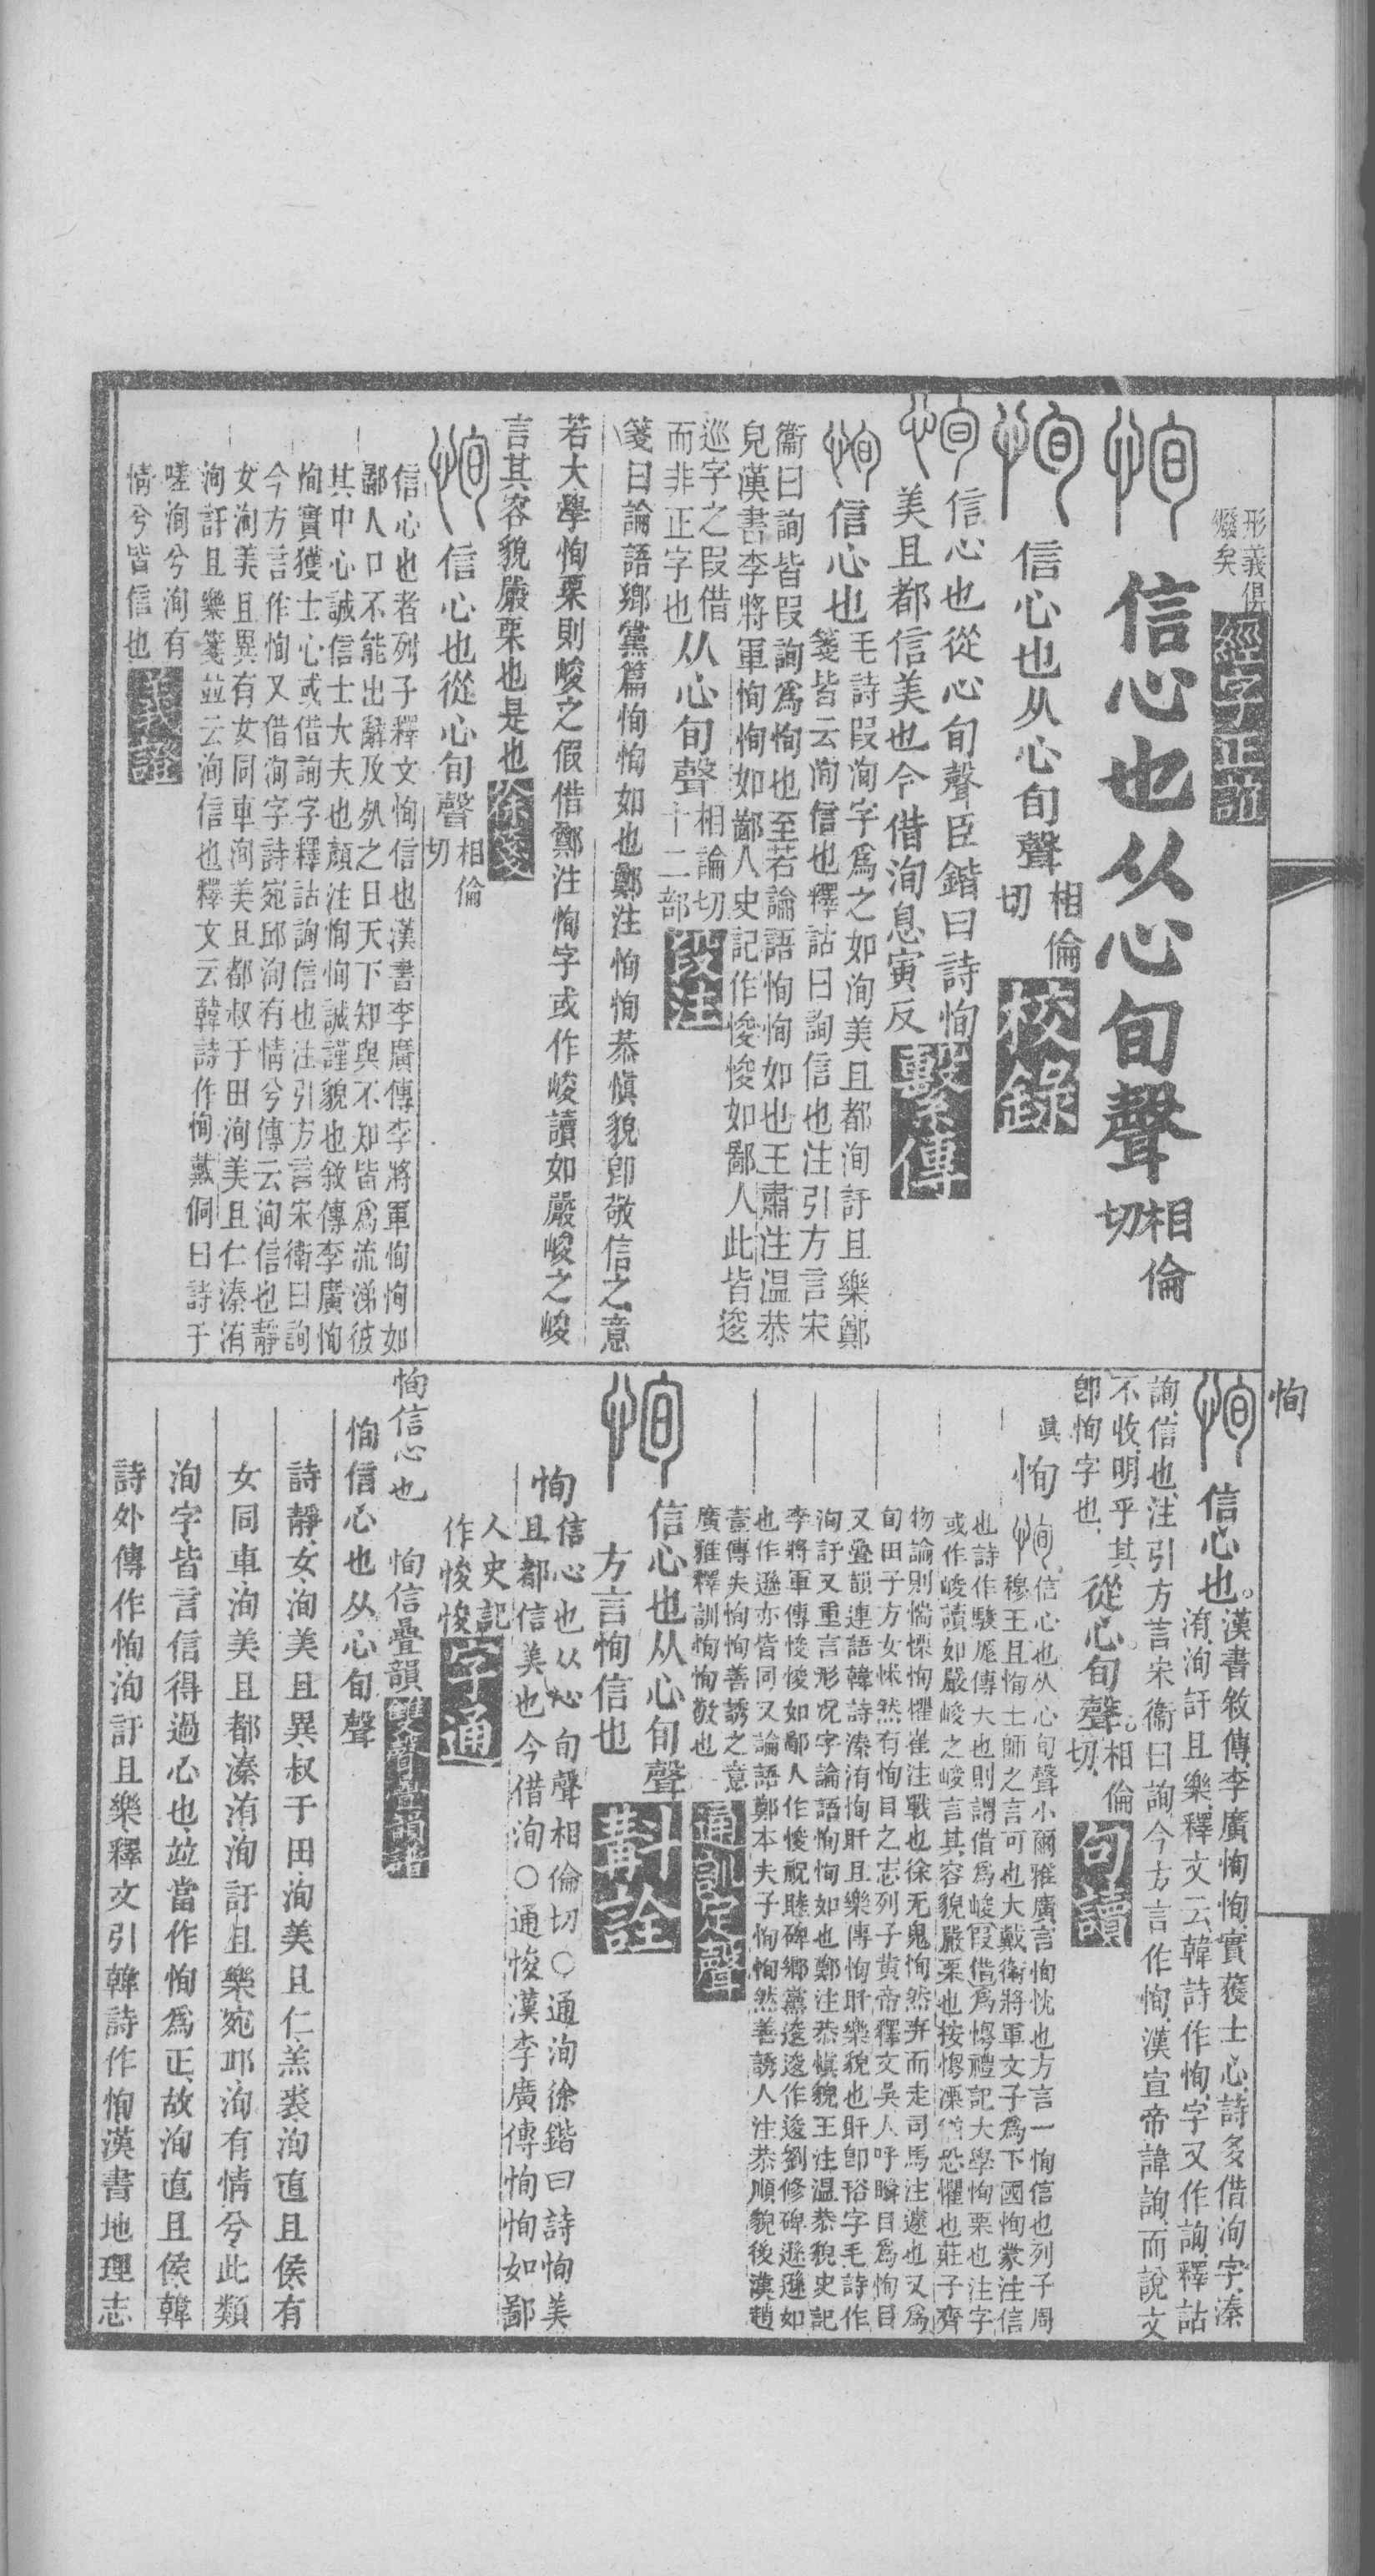 形義俱
癈矣
經字正誼
恂
信心也从心旬聲
相倫
切
恂
信心也从心旬聲
相倫
切
校錄
恂
信心也從心旬聲臣鍇曰詩恂
美且都信美也今借洵息寅反
繫傳
恂
信心也
毛詩叚洵字爲之如洵美且都洵訏且樂鄭
箋皆云洵信也釋詁曰詢信也注引方言宋
衞曰詢皆叚詢爲恂也至若論語恂恂如也王肅注温恭
皃漢書李將軍恂恂如鄙人史記作悛悛如鄙人此皆逡
巡字之叚借
而非正字也
从心旬聲
相倫切
十二部
段注
箋曰論語鄉黨篇恂恂如也鄭注恂恂恭愼貌卽敬信之意
若大學恂栗則峻之假借鄭注恂字或作峻讀如嚴峻之峻
言其容貌嚴栗也是也
徐箋
恂
信心也從心旬聲
相倫
切
信心也者列子釋文恂信也漢書李廣傳李將軍恂恂如
鄙人口不能出辭及死之日天下知與不知皆爲流涕彼
其中心誠信士大夫也顏注恂恂誠謹貌也敘傳李廣恂
恂實獲士心或借詢字釋詁詢信也注引方言宋衛曰詢
今方言作恂又借洵字詩宛邱洵有情兮傳云洵信也靜
女洵美且異有女同車洵美且都叔于田洵美且仁溱洧
洵訏且樂箋竝云洵信也釋文云韓詩作恂戴侗曰詩于
嗟洵兮洵有
情兮皆信也
義證
恂
恂
信心也。
漢書敘傳李廣恂恂實獲士心詩多借洵字溱
洧洵訏且樂釋文云韓詩作恂字又作詢釋詁
詢信也注引方言宋衞曰詢今方言作恂漢宣帝諱詢而說文
不收明乎其
卽恂字也
從心旬聲。
相倫
切
句讀
眞
恂
恂
信心也从心旬聲小爾雅廣言恂忱也方言一恂信也列子周
穆王且恂士師之言可也大戴衛將軍文子爲下國恂蒙注信
也詩作駿厖傳大也則謂借爲峻叚借爲㥧禮記大學恂栗也注字
或作峻讀如嚴峻之峻言其容貌嚴栗也按㥧溧猶恐懼也莊子齊
物論則惴慄恂懼崔注戰也徐无鬼恂然弃而走司馬注遽也又爲
旬田子方女怵然有恂目之志列子黄帝釋文吳人呼瞬目爲恂目
又疊韻連語韓詩溱洧恂盱且樂傳恂盱樂貌也盱卽裕字毛詩作
洵訏又重言形況字論語恂恂如也鄭注恭愼貌王注温恭貌史記
李將軍傳悛悛如鄙人作悛祝睦碑鄉黨逡逡作逡劉修碑遜遜如
也作遜亦皆同又論語鄭本夫子恂恂然善誘人注恭順貌後漢趙
壹傳夫恂恂善誘之意
廣雅釋訓恂恂敬也
通訓定聲
恂
信心也从心旬聲
方言恂信也
斠詮
恂
信心也从心旬聲相倫切○通洵徐鍇曰詩恂美
且都信美也今借洵○通悛漢李廣傳恂恂如鄙
人史記
作悛悛
字通
恂信心也
恂信疊韻
雙聲疊韻譜
恂信心也从心旬聲
詩靜女洵美且異叔于田洵美且仁羔裘洵直且侯有
女同車洵美且都溱洧洵訏且樂宛邱洵有情兮此類
洵字皆言信得過心也竝當作恂爲正故洵直且侯韓
詩外傳作恂洵訏且樂釋文引韓詩作恂漢書地理志